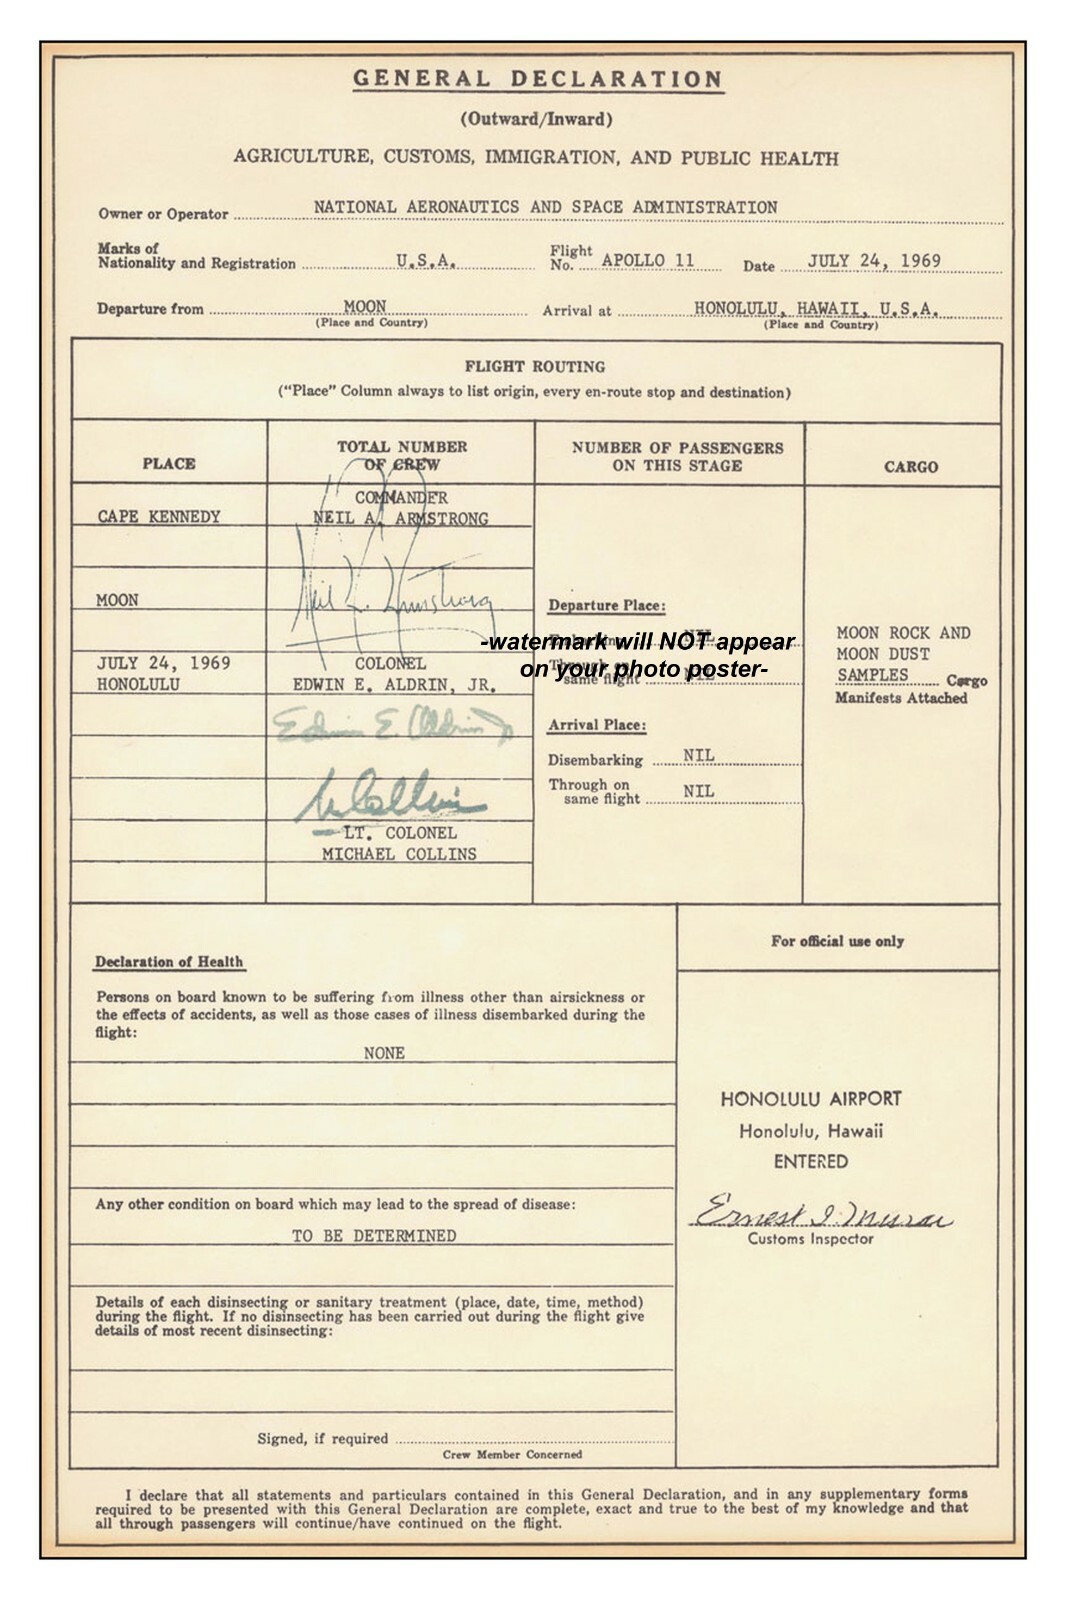 GENERAL DECLARATION
(Outward/Inward)
AGRICULTURE, CUSTOMS, IMMIGRATION, AND PUBLIC HEALTH
Owner or Operator NATIONAL AERONAUTICS AND SPACE ADMINISTRATION
Marks of
Nationality and Registration U.S.A.
Flight
No. APOLLO 11
Date JULY 24, 1969
Departure from MOON
(Place and Country)
Arrival at HONOLULU, HAWAII, U.S.A.
(Place and Country)
FLIGHT ROUTING
("Place" Column always to list origin, every en-route stop and destination)
PLACE
TOTAL NUMBER
OF CREW
NUMBER OF PASSENGERS
ON THIS STAGE
CARGO
CAPE KENNEDY
MOON
JULY 24, 1969
HONOLULU
COMMANDER
NEIL A. ARMSTRONG
Neil A. Armstrong
COLONEL
EDWIN E. ALDRIN, JR.
Edwin E. Aldrin Jr
M Collins
LT. COLONEL
MICHAEL COLLINS
Departure Place:
Embarking NIL
Through on
same flight NIL
-watermark will NOT appear
on your photo poster-
Arrival Place:
Disembarking NIL
Through on
same flight NIL
MOON ROCK AND
MOON DUST
SAMPLES Cargo
Manifests Attached
Declaration of Health
Persons on board known to be suffering from illness other than airsickness or
the effects of accidents, as well as those cases of illness disembarked during the
flight:
NONE
Any other condition on board which may lead to the spread of disease:
TO BE DETERMINED
Details of each disinsecting or sanitary treatment (place, date, time, method)
during the flight. If no disinsecting has been carried out during the flight give
details of most recent disinsecting:
Signed, if required
Crew Member Concerned
For official use only
HONOLULU AIRPORT
Honolulu, Hawaii
ENTERED
Ernest I. Murai
Customs Inspector
I declare that all statements and particulars contained in this General Declaration, and in any supplementary forms
required to be presented with this General Declaration are complete, exact and true to the best of my knowledge and that
all through passengers will continue/have continued on the flight.